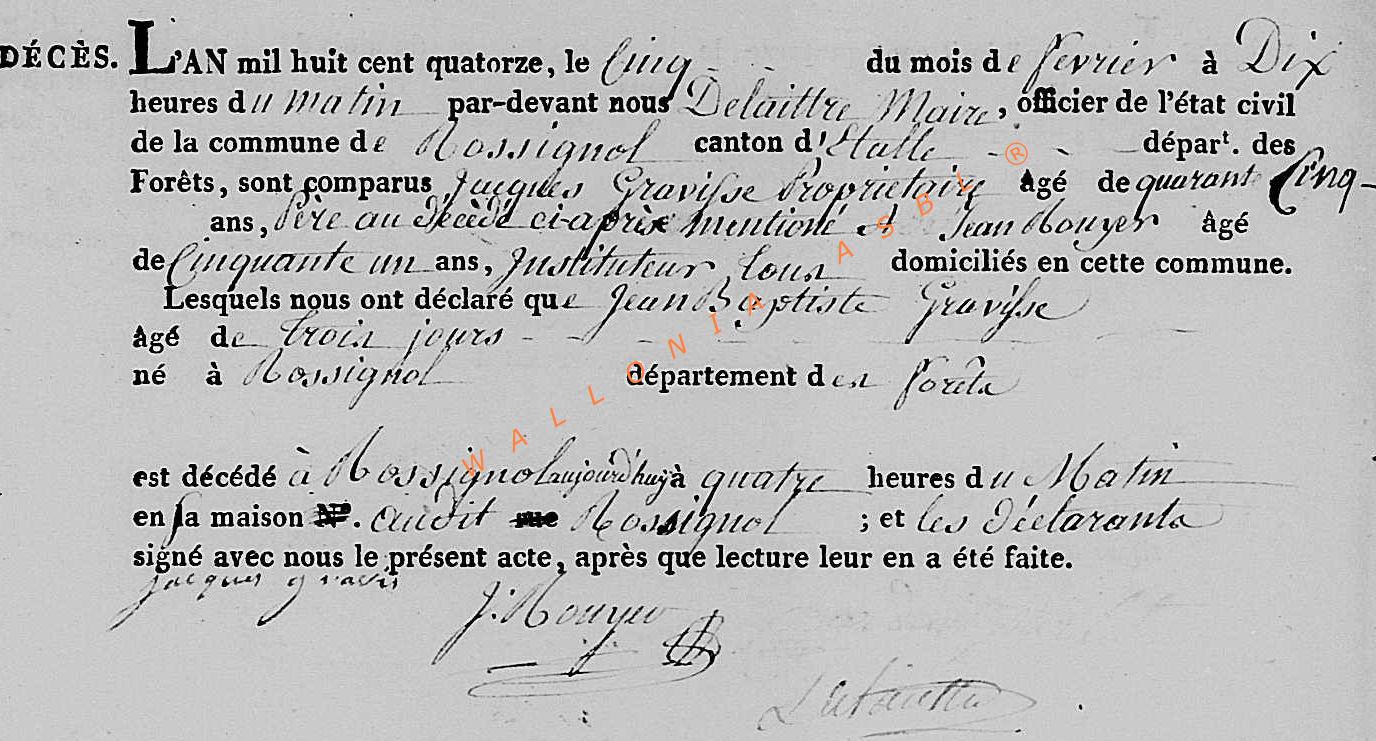 DÉCÈS. L'AN mil huit cent quatorze, le Cinq du mois de fevrier à Dix
heures du matin par-devant nous Delaittre Maire, officier de l'état civil
de la commune de Rossignol canton d'Etalle départ. des
Forêts, sont comparus Jacques Gravisse Propriétaire âgé de quarante Cinq
ans, Père au décédé ci-après mentioné et Jean Rouyer âgé
de Cinquante un ans, Instituteur, tous domiciliés en cette commune.
Lesquels nous ont déclaré que Jean Baptiste Gravisse
âgé de trois jours
né à Rossignol département des forêts
est décédé à Rossignol aujourd'huy à quatre heures du Matin
en sa maison N°. audit rue Rossignol ; et les déclarants
signé avec nous le présent acte, après que lecture leur en a été faite.
jacques gravis
J: Rouyer
Delaittre
WALLONIA ASBL ®